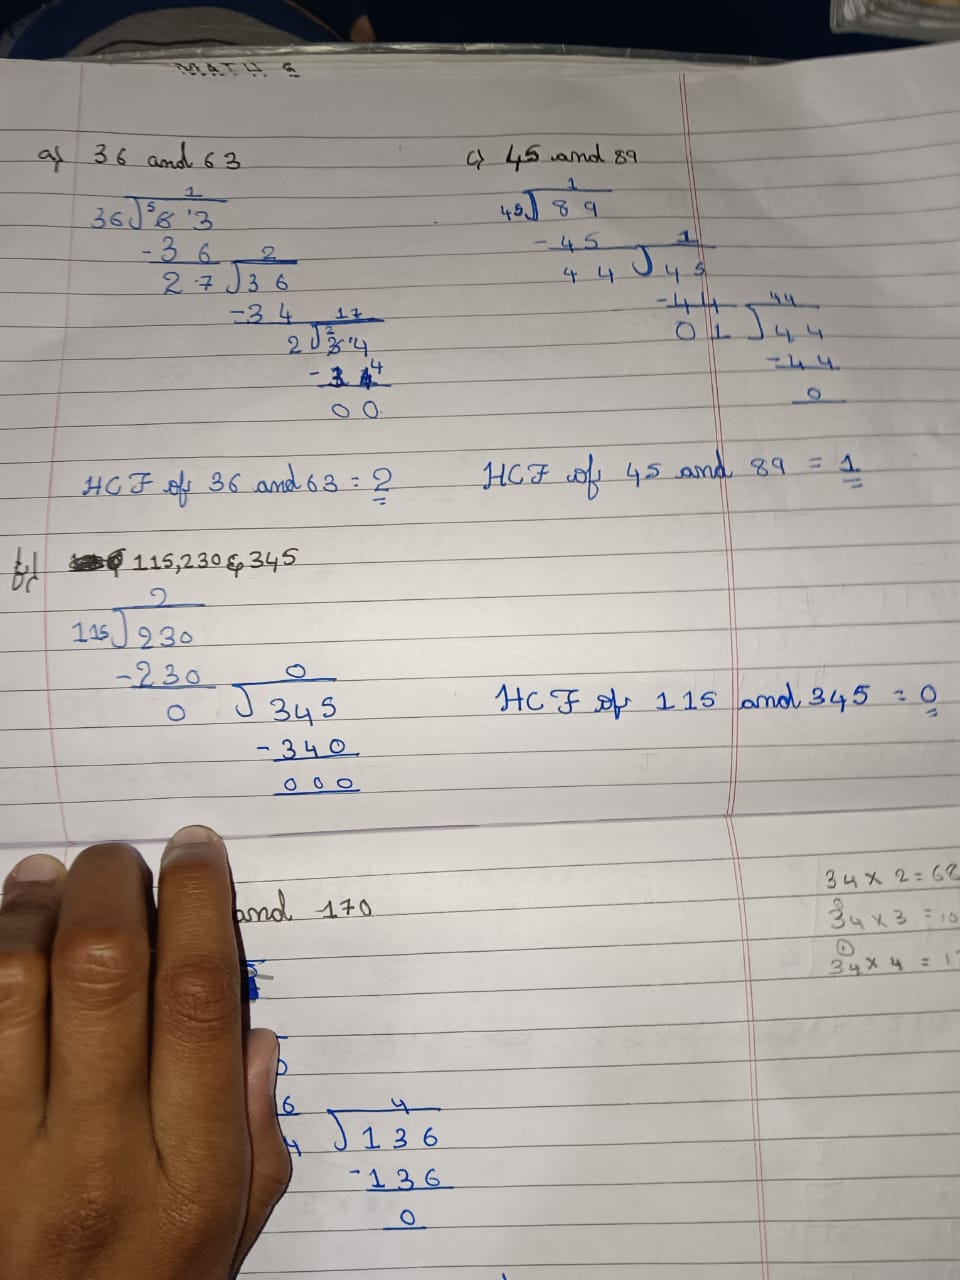 MATHS
a) 36 and 63
1
36 5 6 '3
- 3 6 2
2 7 3 6
- 3 4 17
2 2 3 '4
- 3 4
0 0
HCF of 36 and 63 = 2
c) 45 and 89
1
45 8 9
- 4 5 1
4 4 4 5
- 4 4 44
0 1 4 4
- 4 4
0
HCF of 45 and 89 = 1
b) 115, 230 & 345
2
115 230
- 230 0
0 345
- 340
0 0 0
HCF of 115 and 345 = 0
and 170
6 4
4 136
- 136
0
34 x 2 = 68
34 x 3 = 10
34 x 4 = 1